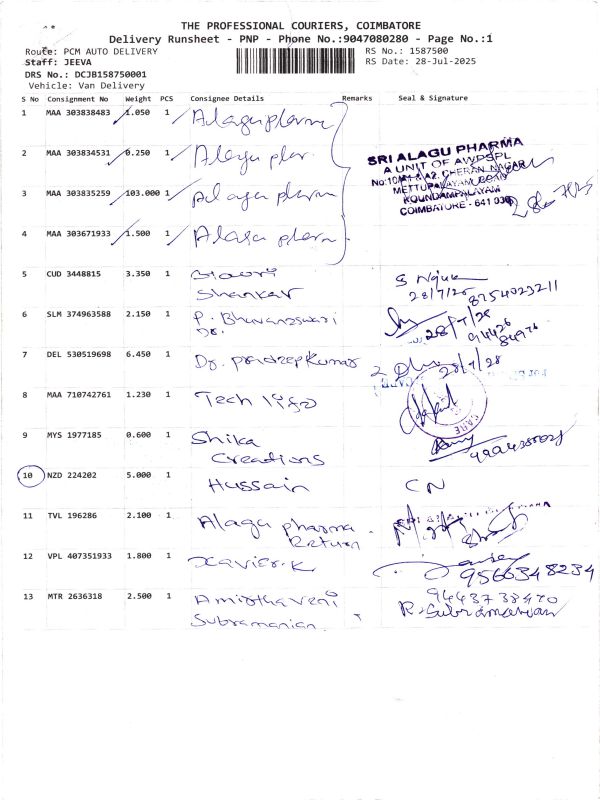 THE PROFESSIONAL COURIERS, COIMBATORE
Delivery Runsheet - PNP - Phone No.:9047080280 - Page No.:1
Route: PCM AUTO DELIVERY RS No.: 1587500
Staff: JEEVA RS Date: 28-Jul-2025
DRS No.: DCJB158750001
Vehicle: Van Delivery
S No Consignment No Weight PCS Consignee Details Remarks Seal & Signature
1 MAA 303838483 1.050 1 Alagu pharm
2 MAA 303834531 0.250 1
SRI ALAGU PHARMA
A UNIT OF AWPSPL
CHERAN NAGAR
3 MAA 303835259 103.000 1 Alagu pharm
METTUPALAYAM ROAD
KOUNDAMPALAYAM
COIMBATORE - 641 030
4 MAA 303671933 1.500 1 Alagu pharm
5 CUD 3448815 3.350 1 Gowri
Shankar
28/7/25 8754023211
6 SLM 374963588 2.150 1 P. Bhuvaneswari
Dr.
94426
84976
7 DEL 530519698 6.450 1 Dr. Pradeep Kumar
8 MAA 710742761 1.230 1 Tech
CARE
9 MYS 1977185 0.600 1 Shika
Creations
10 NZD 224202 5.000 1 Hussain CN
11 TVL 196286 2.100 1 Alagu pharma
Return
12 VPL 407351933 1.800 1 Xavier.K
9566348234
13 MTR 2636318 2.500 1 Amirthaveni
Subramanian
9443738470
R. Subramanian